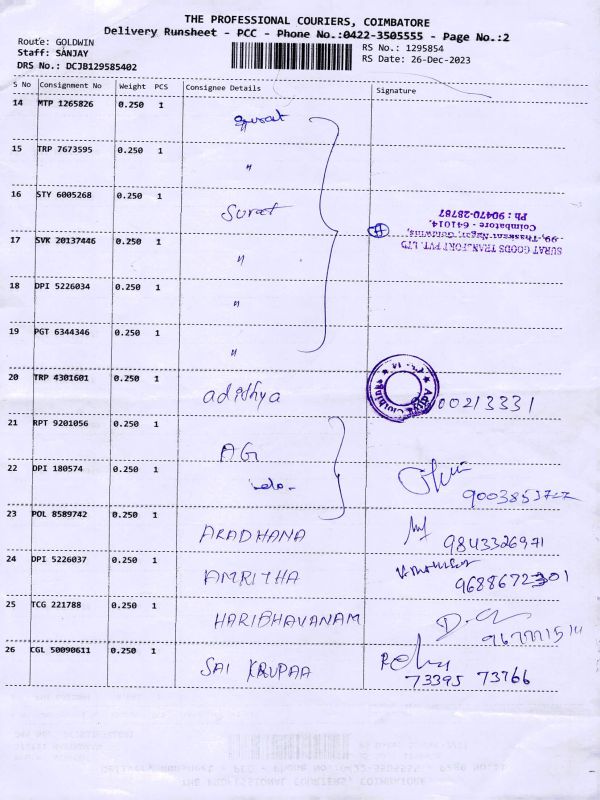 THE PROFESSIONAL COURIERS, COIMBATORE
Delivery Runsheet - PCC - Phone No.:0422-3505555 - Page No.:2
Route: GOLDWIN
Staff: SANJAY
DRS No.: DCJB129585402
RS No.: 1295854
RS Date: 26-Dec-2023
S No Consignment No Weight PCS Consignee Details Signature
14 MTP 1265826 0.250 1 Surat
15 TRP 7673595 0.250 1 "
16 STY 6005268 0.250 1 Surat
SURAT GOODS TRANSPORT PVT. LTD
99, Thaskant Nagar, Goldwins,
Coimbatore - 641014.
Ph : 90470-28787
17 SVK 20137446 0.250 1 "
18 DPI 5226034 0.250 1 "
19 PGT 6344346 0.250 1 "
20 TRP 4301601 0.250 1 adithya
21 RPT 9201056 0.250 1 AG
22 DPI 180574 0.250 1 -do-
23 POL 8589742 0.250 1 ARADHANA 9843326971
24 DPI 5226037 0.250 1 AMRITHA
25 TCG 221788 0.250 1 HARIBHAVANAM
26 CGL 50090611 0.250 1 SAI KRUPAA 73395 73766